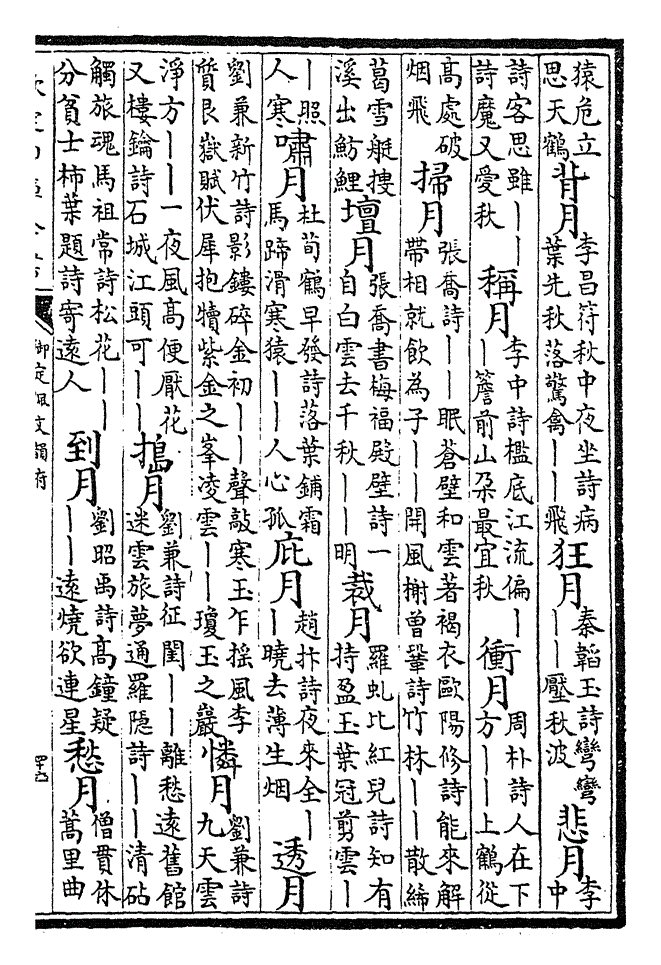 猿危立思天鶴背月李昌符秋中夜坐詩病葉先秋落驚禽——飛狂月秦韜玉詩彎彎——壓秋波悲月李中
詩客思雖——詩魔又愛秋稱月李中詩檻底江流偏——簷前山朶最宜秋衝月周朴詩人在下方——上鶴從
高處破烟飛掃月張喬詩——眠蒼壁和雲著褐衣歐陽修詩能來解帶相就飲為子——開風榭曾鞏詩竹林——散絺
葛雪艇摟溪出魴鯉壇月張喬書梅福殿壁詩一自白雲去千秋——明裁月羅虬比紅兒詩知有持盈玉葉冠剪雲—
—照人寒嘯月杜荀鶴早發詩落葉鋪霜馬蹄滑寒猿——人心孤庇月趙抃詩夜來全——曉去薄生烟透月
劉兼新竹詩影鏤碎金初——聲敲寒玉乍摇風李質艮嶽賦伏犀抱犢紫金之峯凌雲——瓊玉之巖憐月劉兼詩九天雲
淨方——一夜風高便厭花又樓鑰詩石城江頭可——搗月劉兼詩征閨——離愁遠舊館迷雲旅夢通羅隐詩——清砧
觸旅魂馬祖常詩松花——分貧士柿葉題詩寄遠人到月劉昭禹詩高鐘疑——遠燒欲連星愁月僧貫休蒿里曲
御定佩文韻府